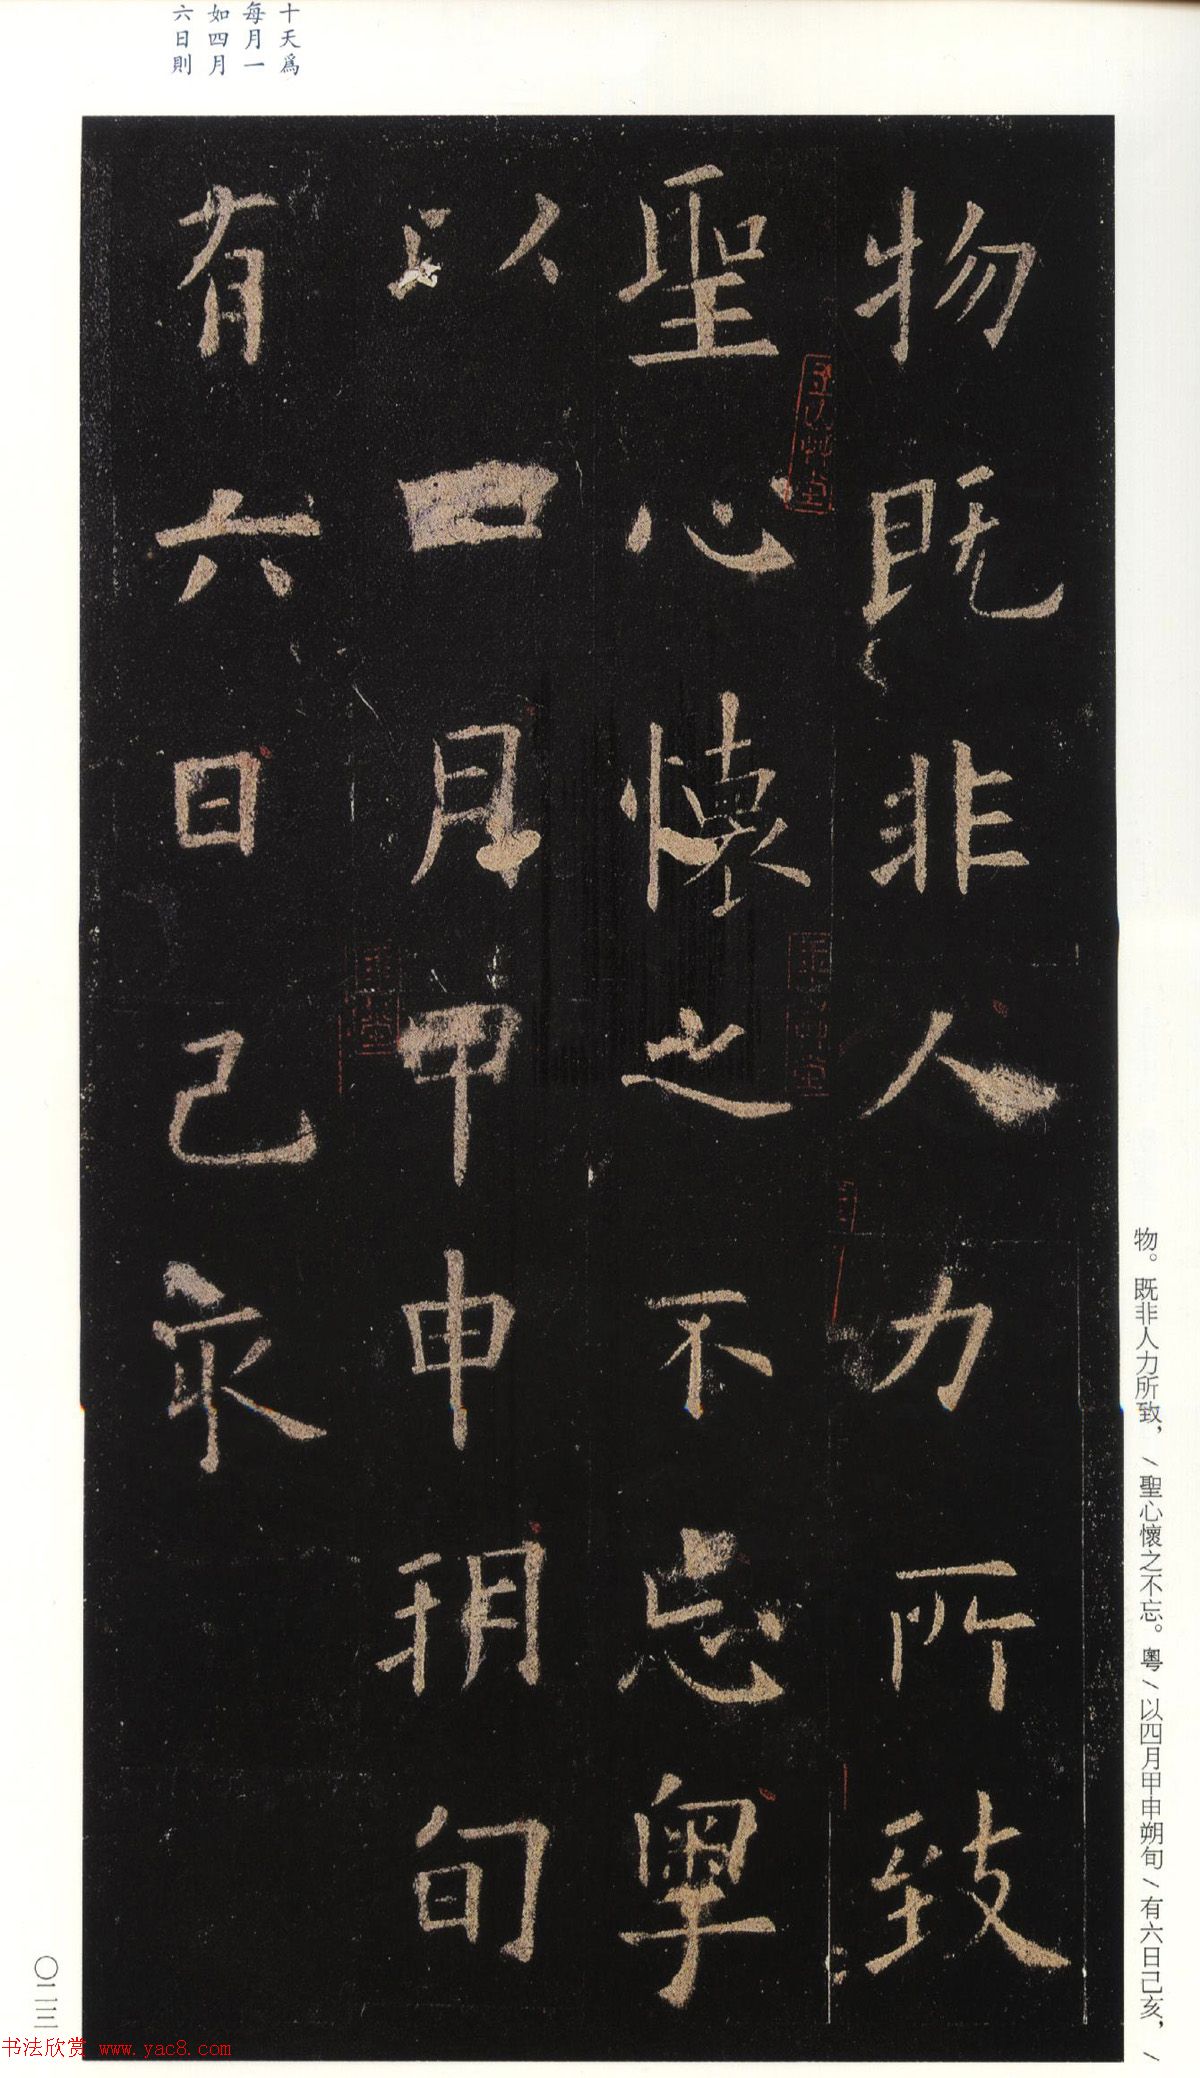 十天爲
每月一
如四月
六日則
物既非人力所致
聖心懷之不忘粵
以四月甲申朔旬
有六日己亥
物。既非人力所致，/聖心懷之不忘。粵/以四月甲申朔旬/有六日己亥，/
〇二三
书法欣赏 www.yac8.com